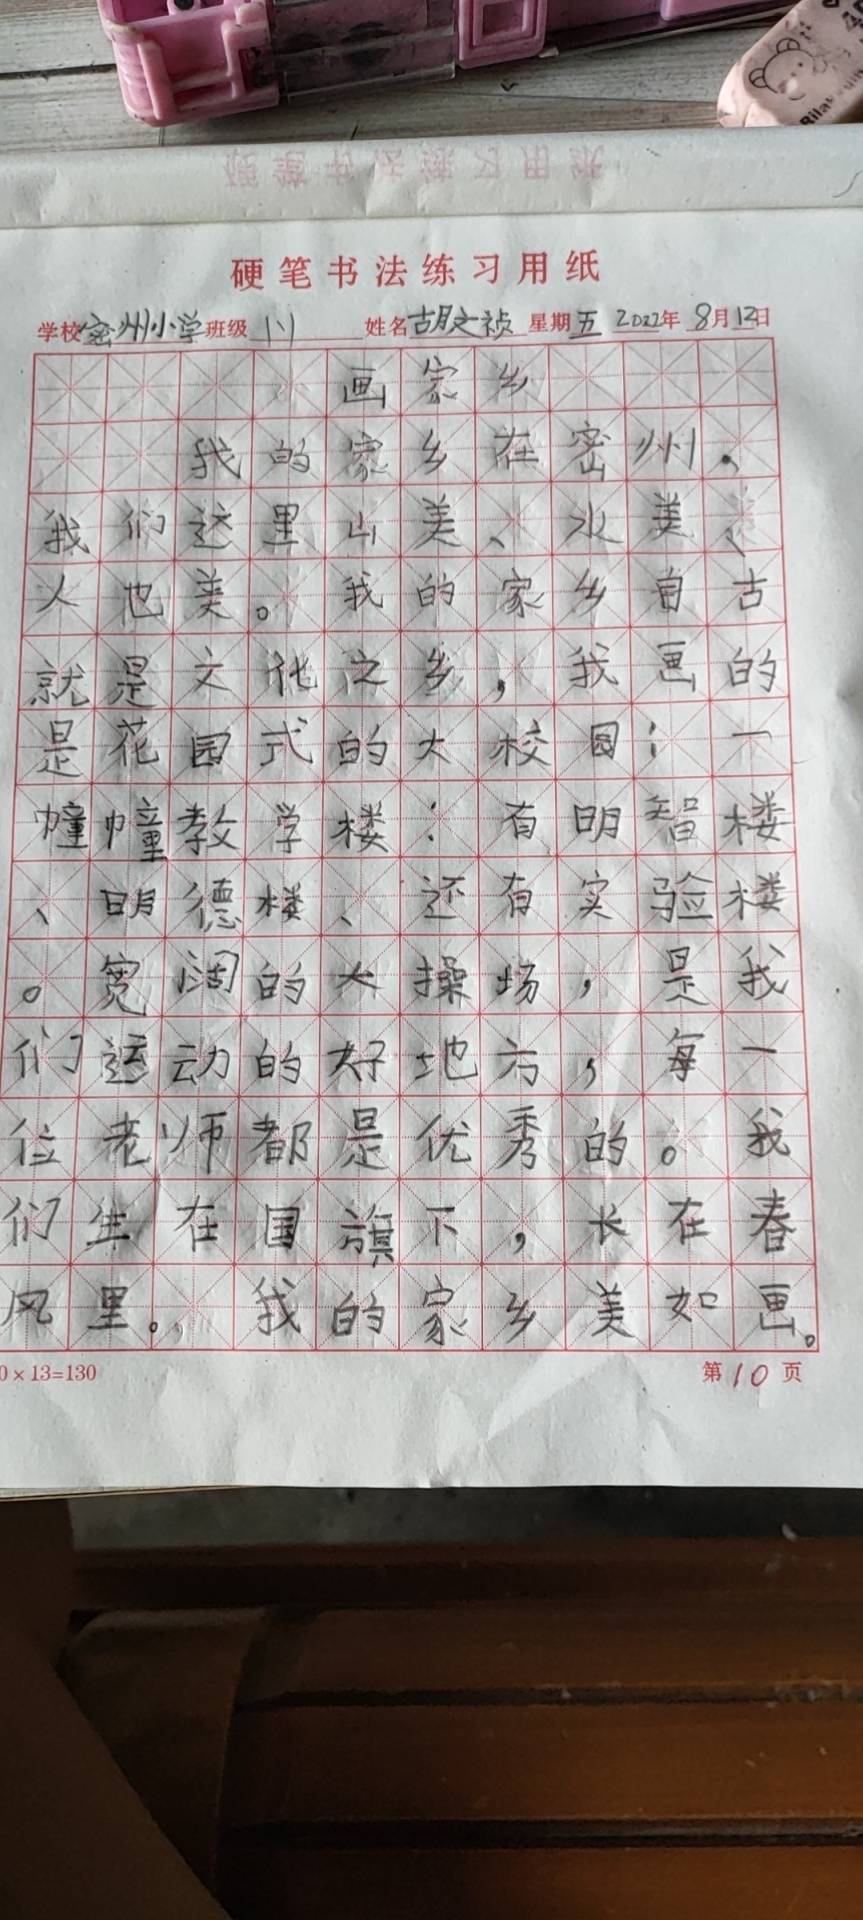 硬笔书法练习用纸
硬笔书法练习用纸
学校密州小学班级1.1姓名胡文祯星期五2022年8月12日
画家乡
我的家乡在密州、
我们这里山美、水美、
人也美。我的家乡自古
就是文化之乡，我画的
是花园式的大校园：一
幢幢教学楼：有明智楼
、明德楼、还有实验楼
。宽阔的大操场，是我
们运动的好地方，每一
位老师都是优秀的。我
们生在国旗下，长在春
风里。我的家乡美如画。
0×13=130
第10页